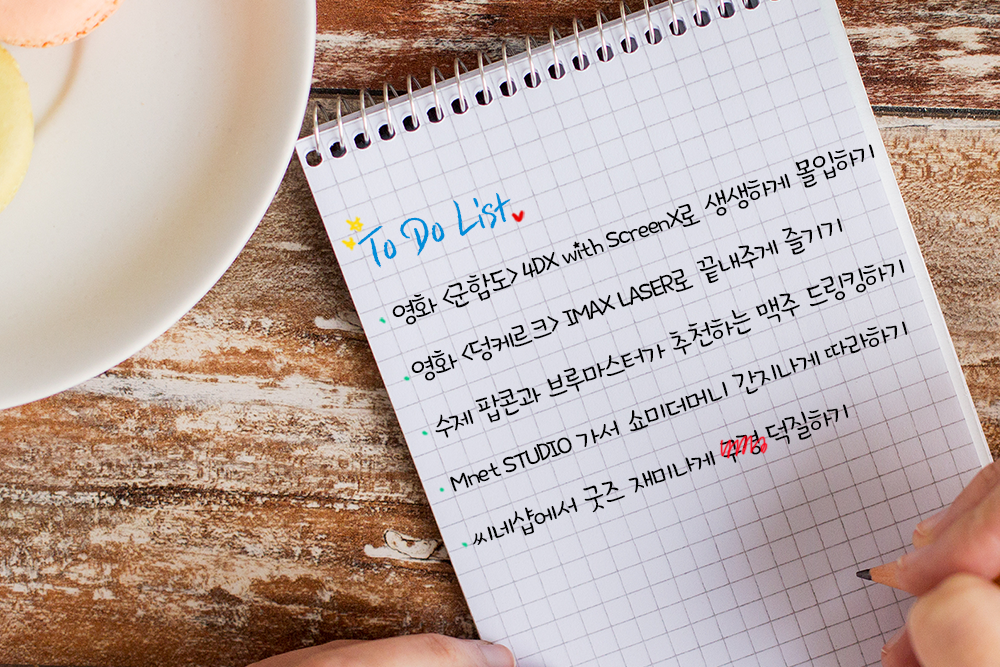 To Do List
영화 <군함도> 4DX with ScreenX로 생생하게 몰입하기
영화 <덩케르크> IMAX LASER로 끝내주게 즐기기
수제 팝콘과 브루마스터가 추천하는 맥주 드링킹하기
Mnet STUDIO 가서 쇼미더머니 간지나게 따라하기
씨네샵에서 굿즈 재미나게 구경 덕질하기